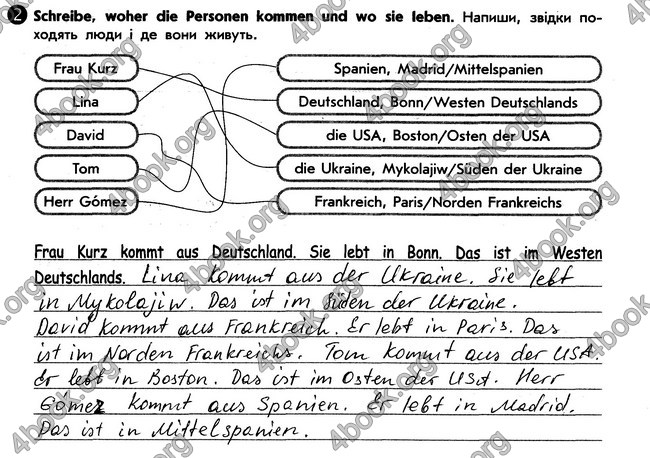 2 Schreibe, woher die Personen kommen und wo sie leben. Напиши, звідки по-
ходять люди і де вони живуть.
Frau Kurz
Spanien, Madrid/Mittelspanien
Lina
Deutschland, Bonn/Westen Deutschlands
David
die USA, Boston/Osten der USA
Tom
die Ukraine, Mykolajiw/Süden der Ukraine
Herr Gómez
Frankreich, Paris/Norden Frankreichs
Frau Kurz kommt aus Deutschland. Sie lebt in Bonn. Das ist im Westen
Deutschlands. Lina kommt aus der Ukraine. Sie lebt
in Mykolajiw. Das ist im Süden der Ukraine.
David kommt aus Frankreich. Er lebt in Paris. Das
ist im Norden Frankreichs. Tom kommt aus der USA.
Er lebt in Boston. Das ist im Osten der USA. Herr
Gómez kommt aus Spanien. Er lebt in Madrid.
Das ist in Mittelspanien.
4book.org